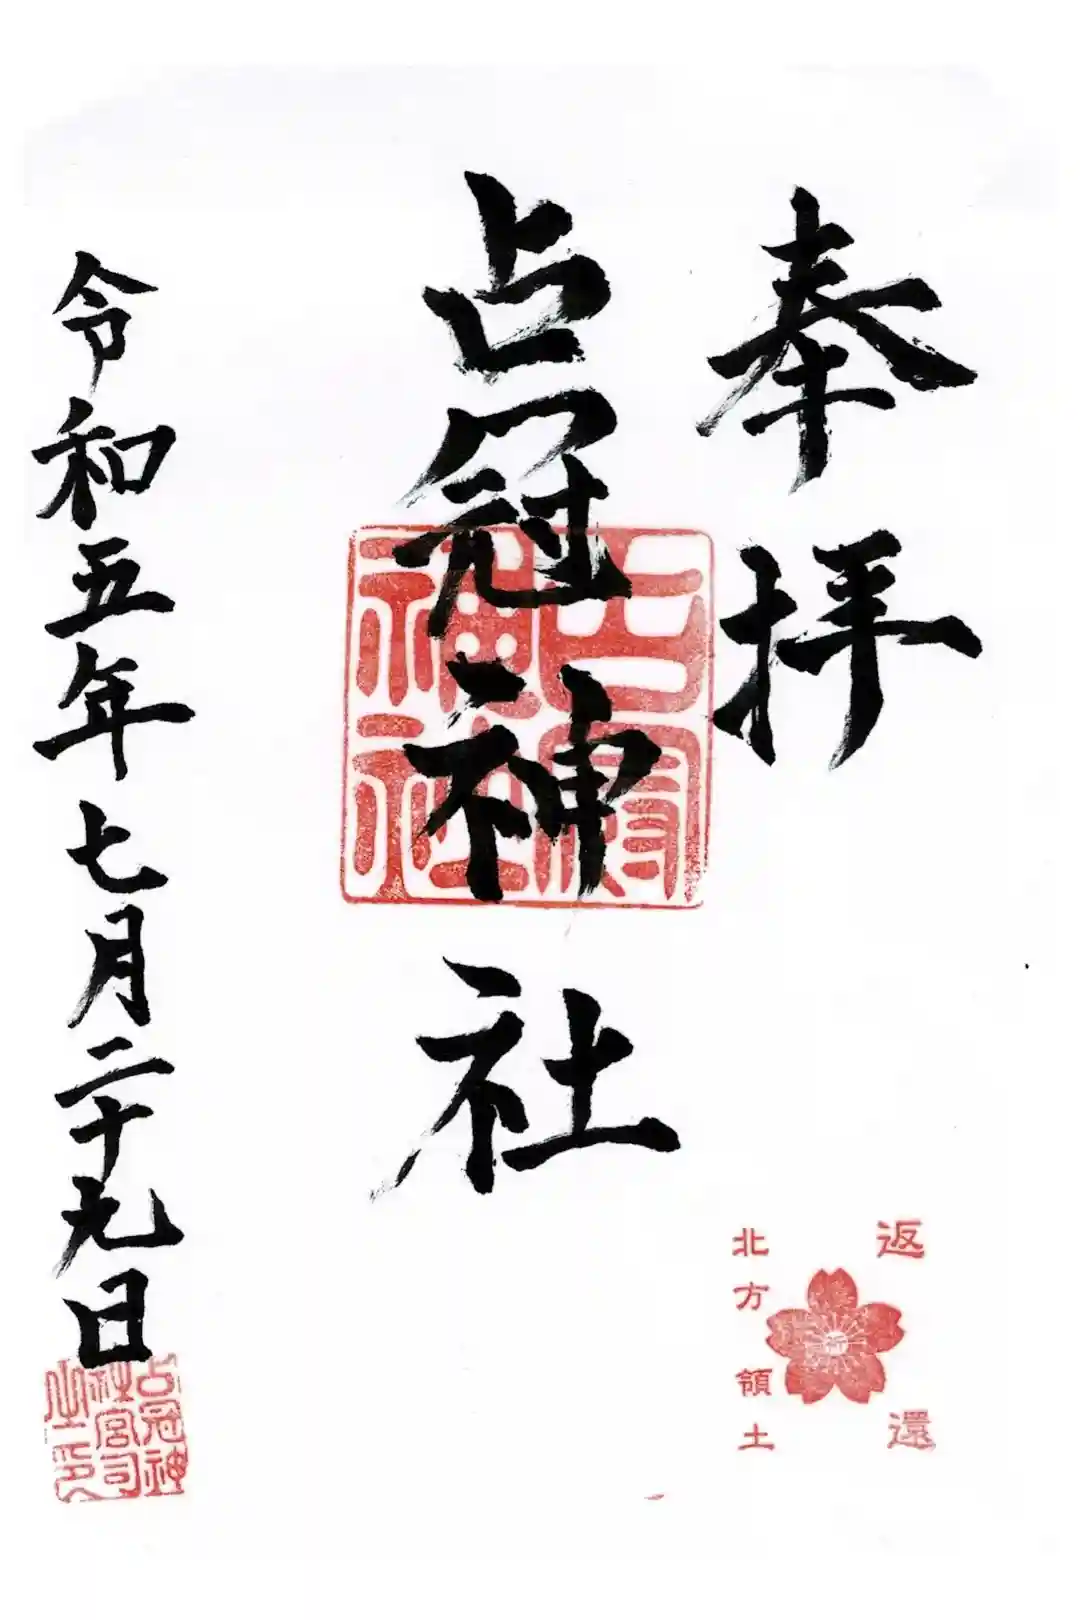 奉拝
占冠神社
占冠神社
令和五年七月二十九日
占冠神社宮司之印
返還
北方領土
祈